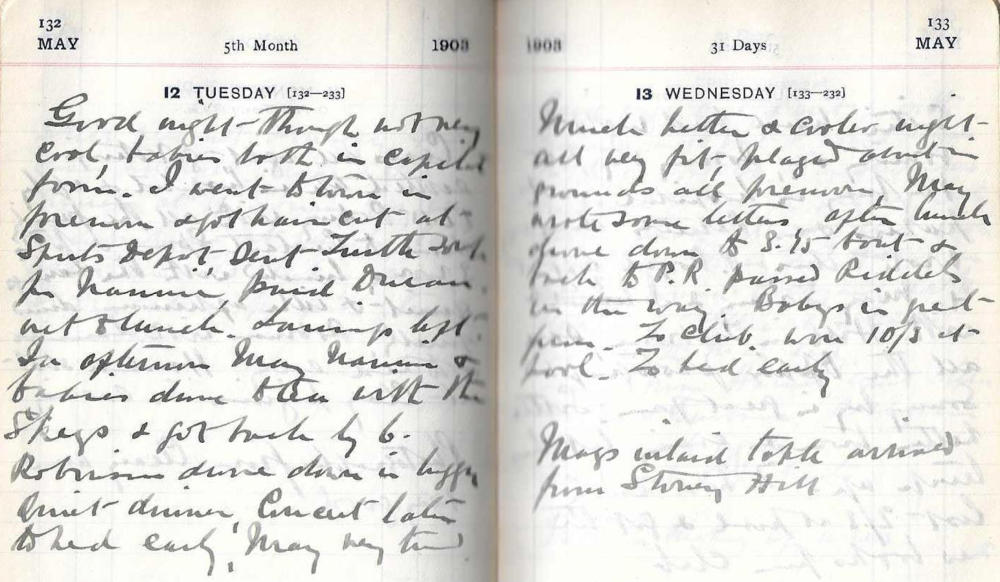 132
MAY
5th Month
1903
12 TUESDAY [132—233]
Good night - though not very
cool, babies both in capital
form. I went to town in
forenoon & got hair cut at
Sports Depot. Sent
for Nannie, paid Duncan.
out to lunch. left.
In afternoon May Nannie &
babies drove to tea with the
Skeys & got back by 6.
Robinson drove down in buggy
Quiet dinner, Concert later
to bed early, May very tired
1903
31 Days
133
MAY
13 WEDNESDAY [133—232]
Much better & cooler night -
all very fit - played about in
grounds all forenoon, May
wrote some letters, after lunch
drove down to 3.15 boat &
back to P.R. passed Riddels
on the way. Babys in great
form. To Club. won 10/3 at
pool. To bed early
Mays inlaid table arrived
from Stoney Hill